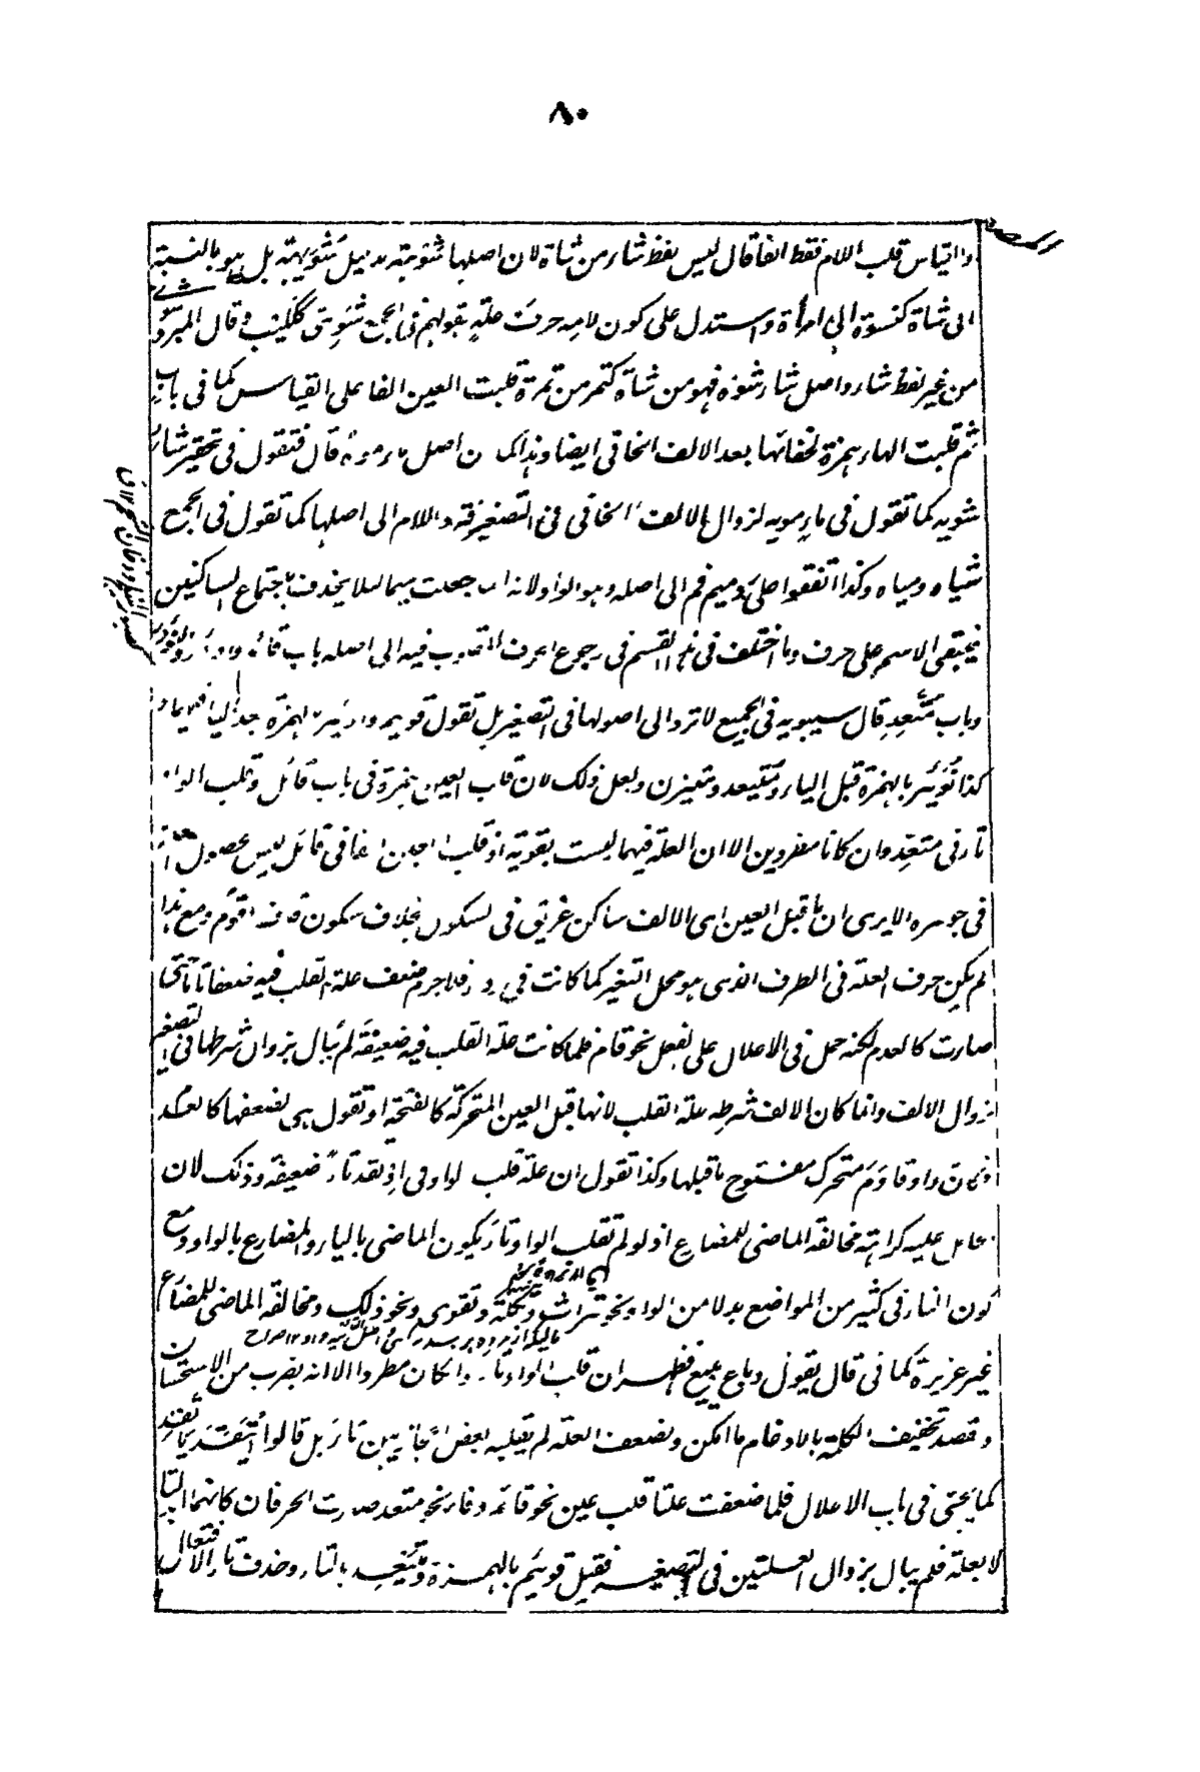 ٨٠
والقياس قلب اللام فقط الفا قال ليس لفظ شاء من شاة لان اصلها شوهة بدليل شويهة بل هو بالنسبة
الى شاة كنسوة الى امرأة واستدل على كون لامه حرف علة بقولهم فى الجمع شوى ككليب وقال المبرد
من غير لفظ شاء واصل شاء شوه فهو من شاة كتمر من تمرة قلبت العين الفا على القياس كما فى باب
ثم قلبت الهاء همزة لخفائها بعد الالف الخافى ايضا وهذا كما ان اصل ماء موه قال فتقول فى تحقير شاء
شويه كما تقول فى ماء مويه لزوال الالف الخافى فى التصغير فترد اللام الى اصلها كما تقول فى الجمع
شياه ومياه وكذا اتفقوا على رد ميم فم الى اصله وهو الواو لانه انما جعلت ميما لئلا يحذف باجتماع الساكنين
فيبقى الاسم على حرف وما اختلف فى هذا القسم فى رجوع الحرف المقلوب فيه الى اصله باب قائم
وباب متعد قال سيبويه فى الجميع لا ترد الى اصولها فى التصغير بل تقول قويئم بالهمزة بعد الياء
كذا نويئر بالهمزة قبل الياء ومتيعد ومتيزن ولعل ذلك لان قلب العين همزة فى باب قائل وقلب الواو
تاء فى متعد وان كانا مطردين الا ان العلة فيهما ليست بقوية اذ قلب العين الفا فى قائل ليس لحصول العلة
فى جوهره الا يرى ان ما قبل العين اى الالف ساكن عريق فى السكون بخلاف سكون قاف اقوم ومع هذا
لم يكن حرف العلة فى الطرف الذى هو محل التغير كما كانت فى رداء فلا جرم ضعف علة القلب فيه ضعفا تاما حتى
صارت كالعدم لكنه حمل فى الاعلال على الفعل نحو قام فلما كانت علة القلب فيه ضعيفة لم يبال بزوال شرطها فى التصغير
بزوال الالف وانما كان الالف شرط علة القلب لانها قبل العين المتحركة كالفتحة او تقول هى لضعفها كالعدم
فكان واو قاوم متحرك مفتوح ما قبلها وكذا تقول ان علة قلب الواو فى اتعد تاء ضعيفة وذلك لان
الحامل عليه كراهة مخالفة الماضى للمضارع اذ لو لم تقلب الواو تاء يكون الماضى بالياء والمضارع بالواو ومع
كون التاء فى كثير من المواضع بدلا من الواو نحو تراث وتكلة وتقوى ونحو ذلك ومخالفة الماضى للمضارع
غير عزيزة كما فى قال يقول وباع يبيع فظهر ان قلب الواو تاء وان كان مطردا الا انه بضرب من الاستحسان
وقصد تخفيف الكلمة بالادغام ما امكن ولضعف العلة لم يقلبه بعض الحجازيين تاء بل قالوا ايتعد ياتعد
كما يجئ فى باب الاعلال فلما ضعفت علتا قلب عين نحو قائم وفاء نحو متعد صارت الحرفان كانهما ابدلتا
لا بعلة فلم يبال بزوال العلتين فى التصغير فقيل قويئم بالهمزة ومتيعد بالتاء وحذفت تاء الافتعال